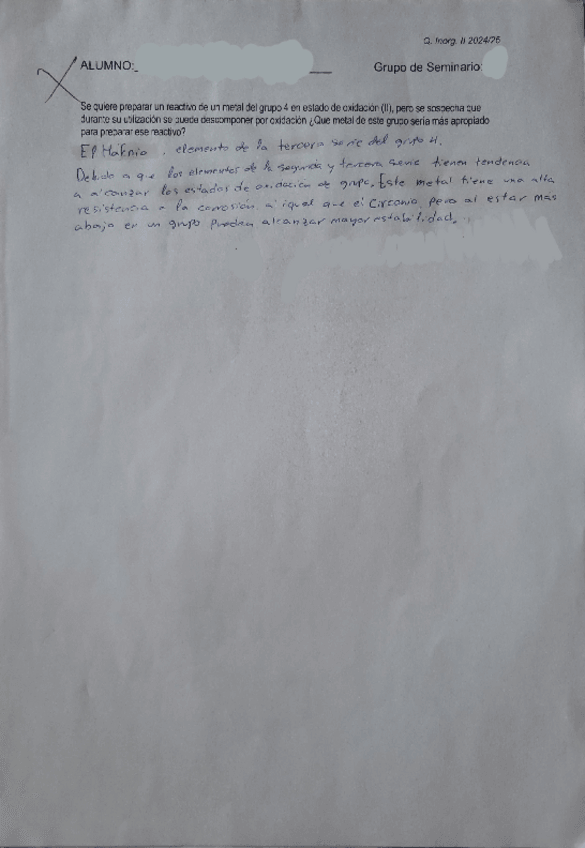 Q. Inorg. II 2024/25
ALUMNO:
Grupo de Seminario:
Se quiere preparar un reactivo de un metal del grupo 4 en estado de oxidación (II), pero se sospecha que
durante su utilización se puede descomponer por oxidación ¿Que metal de este grupo sería más apropiado
para preparar ese reactivo?
El Hafnio, elemento de la tercera serie del grupo 4.
Debido a que los elementos de la segunda y tercera serie tienen tendencia
a alcanzar los estados de oxidación de grupo. Este metal tiene una alta
resistencia a la corrosión al igual que el Circonio, pero al estar más
abajo en un grupo puedan alcanzar mayor estabilidad.